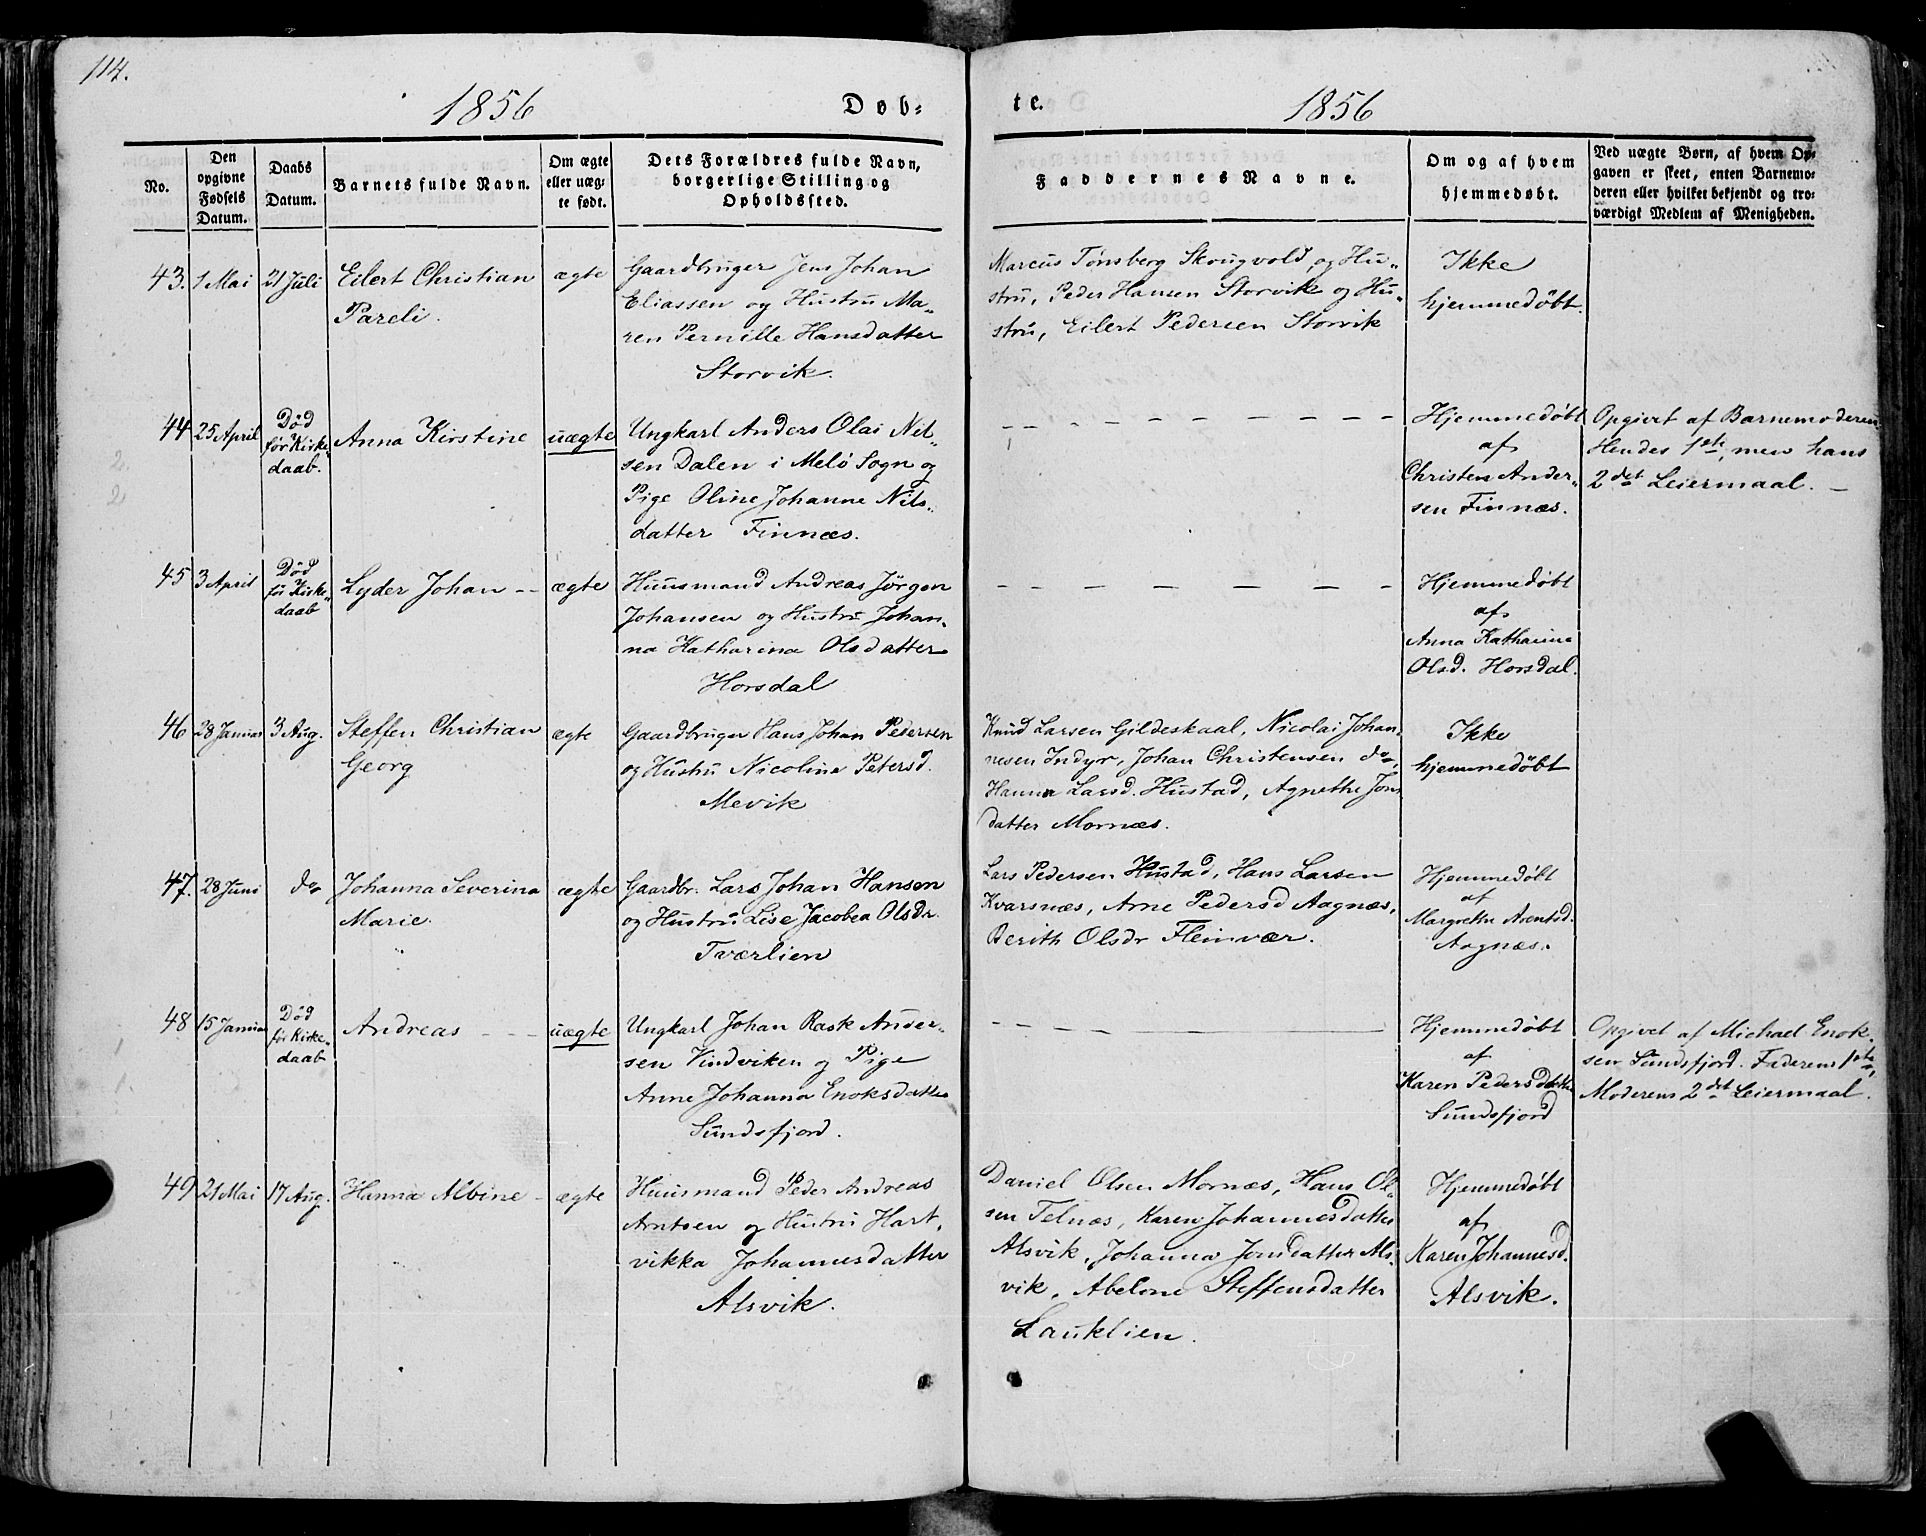 114.
1856
Døb-
te.
1856
No.
Den opgivne Fødsels Datum.
Daabs Datum.
Barnets fulde Navn.
Om ægte eller uæg-te født.
Dets Forældres fulde Navn, borgerlige Stilling og Opholdssted.
Faddernes Navne.
Om og af hvem hjemmedøbt.
Ved uægte Børn, af hvem Op-gaven er skeet, enten Barnemo-deren eller hvilket bekjendt og tro-værdigt Medlem af Menigheden.
43.
1 Mai
21 Juli
Eilert Christian
Pareli.
ægte
Gaardbruger Jens Johan
Eliassen og Hustru Ma-
ren Pernille Hansdatter
Storvik.
Marcus Tønsberg Skougvold, og Hu-
stru, Peder Hansen Storvik og Hu-
stru, Eilert Pedersen Storvik
Ikke
hjemmedøbt.
44
2
2
25 April
Død
før Kirke-
daab.
Anna Kirstine
uægte
Ungkarl Anders Olai Nil-
sen Dalen i Melø Sogn og
Pige Oline Johanne Nils-
datter Finnæs.
Hjemmedøbt
af
Christen Ander-
sen Finnæs.
Opgivet af Barnemoderen
Hendes 1ste, men hans
2det Leiermaal. –
45
3 April
Død
før Kirke-
daab
Lyder Johan --
ægte
Huusmand Andreas Jørgen
Johansen og Hustru Johan-
na Katharina Olsdatter
Horsdal
Hjemmedøbt
af
Anna Katharina
Olsd. Horsdal.
46
28 Januar
3 Aug.
Steffen Christian
Georg
ægte
Gaardbruger Hans Johan Pedersen
og Hustru Nicolina Petersd.
Mevik
Knud Larsen Gildeskaal, Nicolai Johan-
nesen Indyr, Johan Christensen do,
Hanna Larsd. Hustad, Agnethe Jons
datter Mornæs.
Ikke
hjemmedøbt
47.
28 Juni
do
Johanna Severina
Marie.
ægte
Gaardbr. Lars Johan Hansen
og Hustru Lise Jacobea Olsdr.
Tværlien
Lars Pedersen Hustad, Hans Larsen
Kvarsnæs, Arne Pedersd Aagnæs,
Berith Olsdr Fleinvær.
Hjemmedøbt
af
Margrethe Arentsd.
Aagnæs.
48
1
1
15 Januar
Død
før Kirke-
daab
Andreas - -
uægte
Ungkarl Johan Rask Ander-
sen Vindviken og Pige
Anne Johanna Enoksdatter
Sundsfjord.
Hjemmedøbt
af
Karen Pedersdatter
Sundsfjord
Opgivet af Michael Enok-
sen Sundsfjord. Faderens 1ste,
Moderens 2det Leiermaal.
49
21 Mai
17 Aug.
Hanna Albine -
ægte
Huusmand Peder Andreas
Arntsen og Hustru Hart-
vikka Johannesdatter
Alsvik.
Daniel Olsen Mornæs, Hans Ol-
sen Telnæs, Karen Johannesdatter
Alsvik, Johanna Jonsdatter Als-
vik, Abelone Steffensdatter
Lauklien.
Hjemmedøbt
af
Karen Johannesd.
Alsvik.